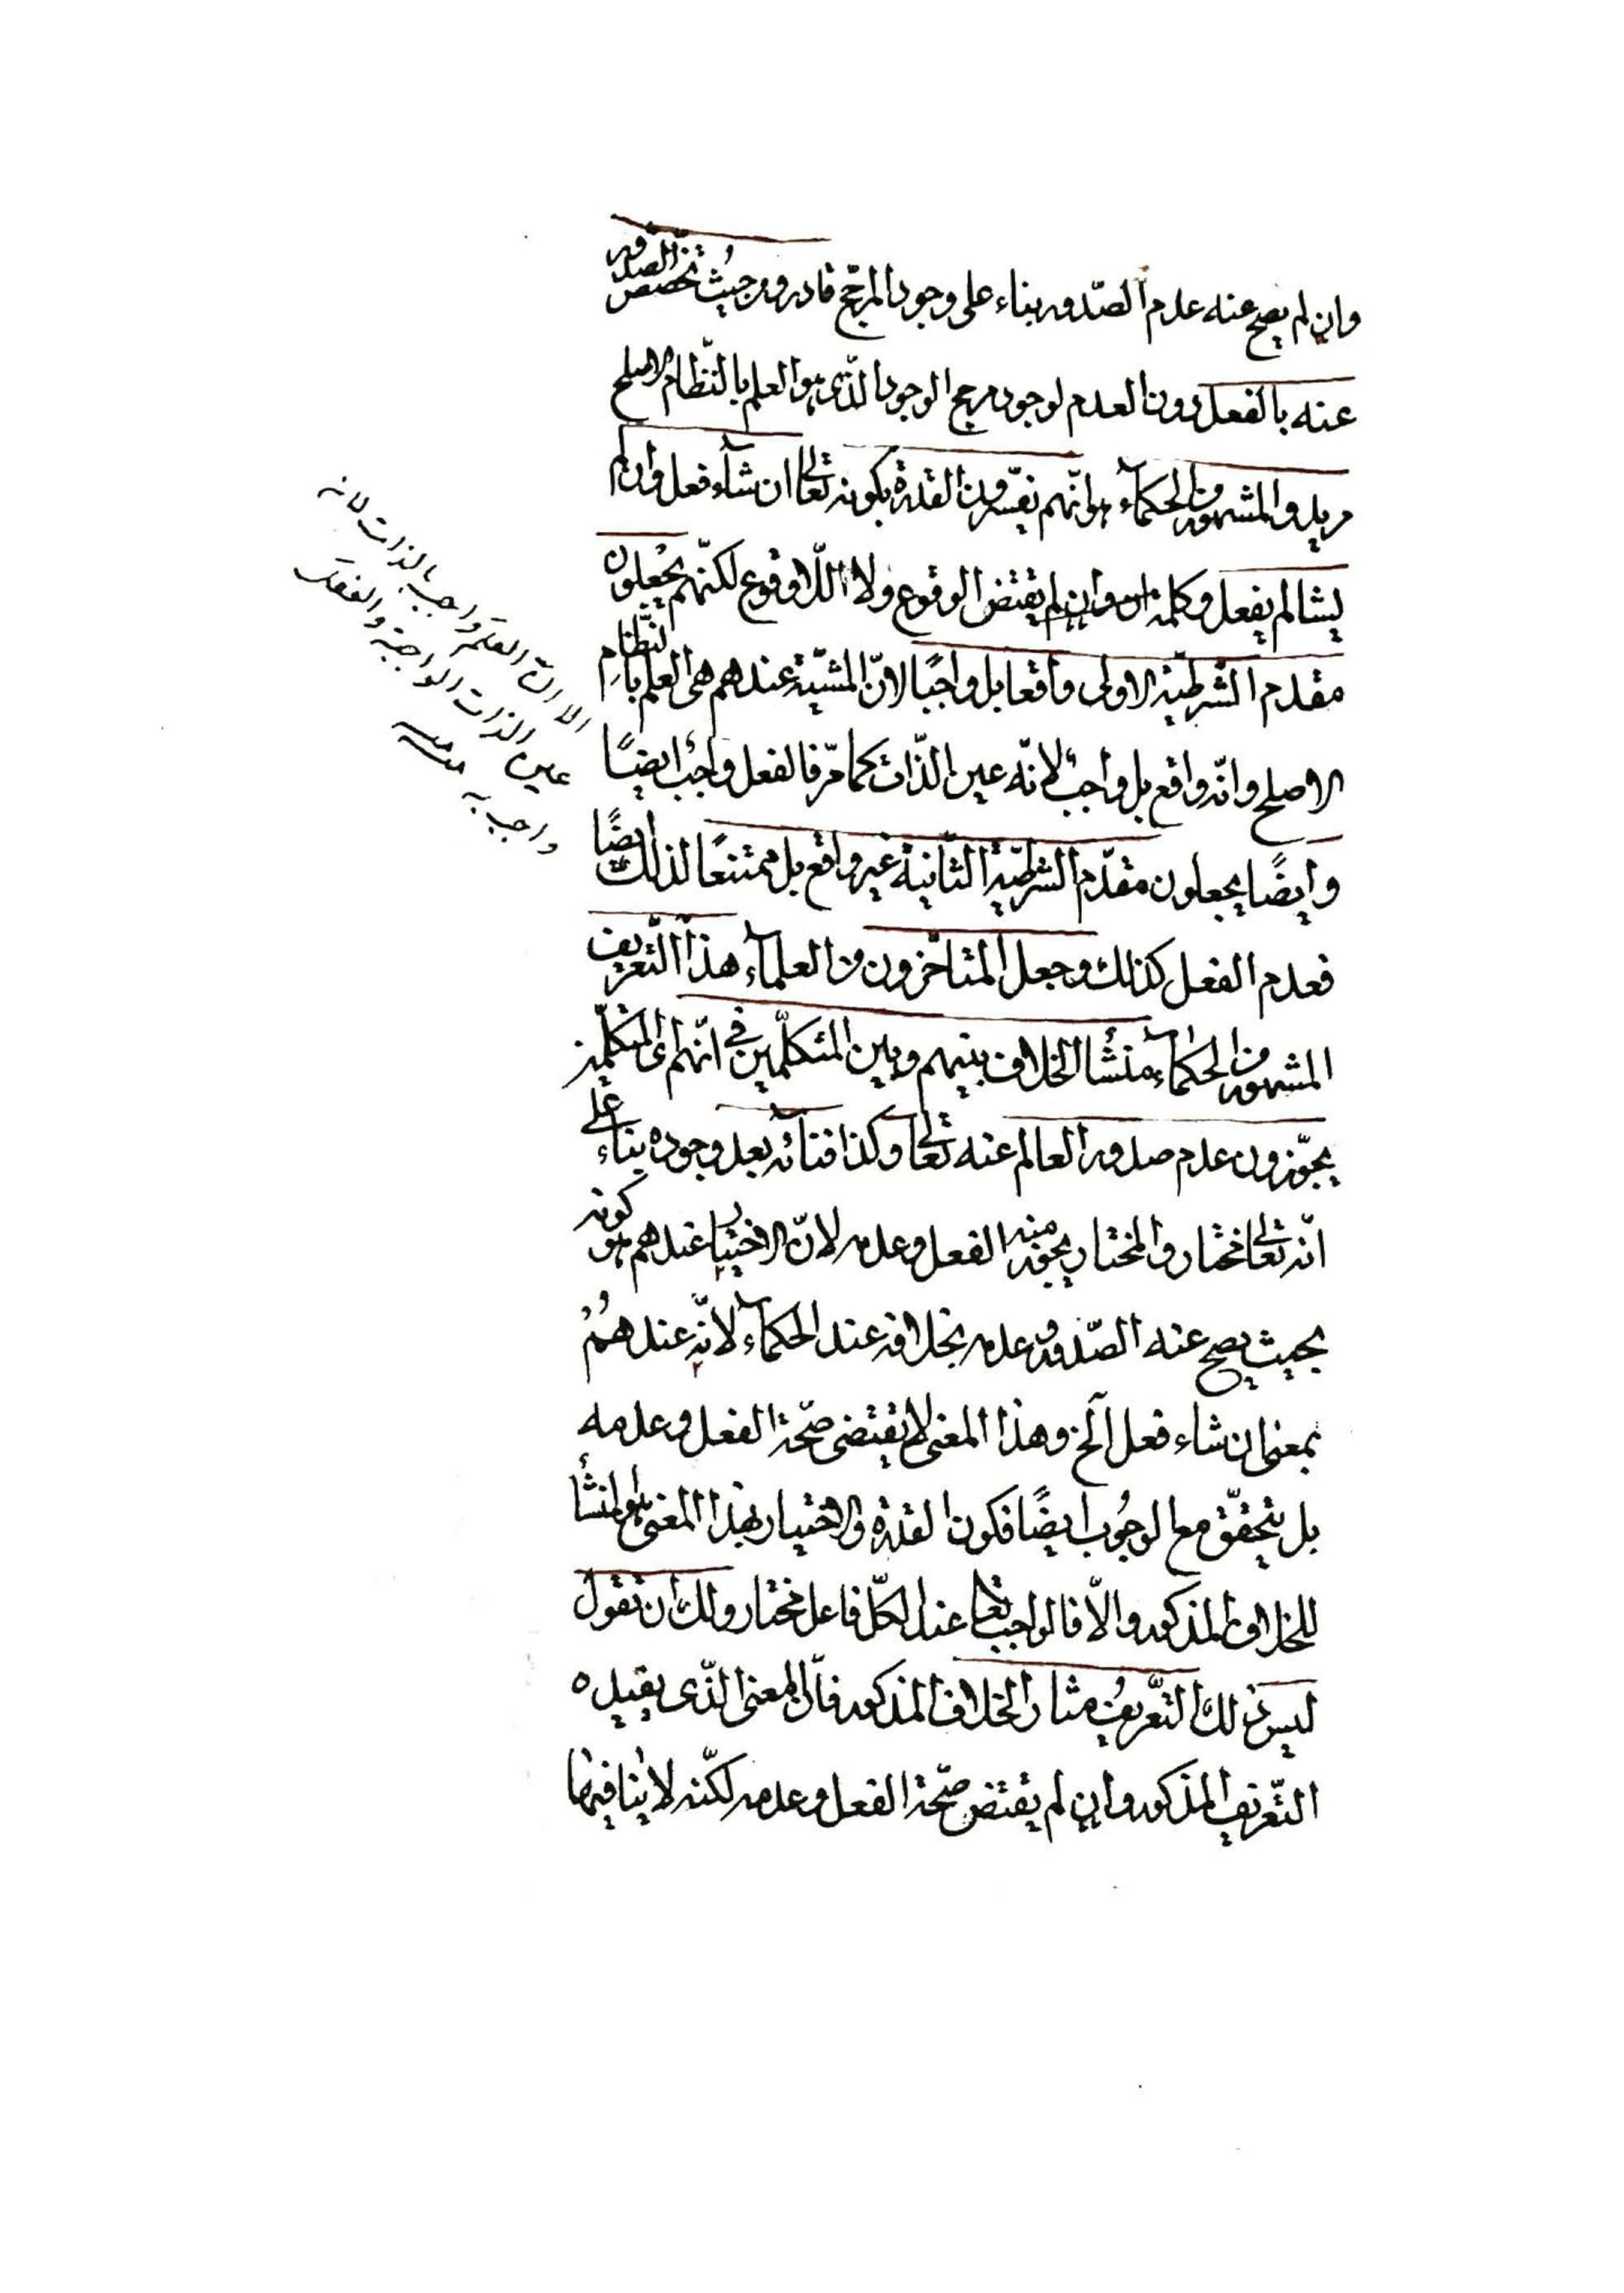 وان لم يصح عنه عدم الصّدور بناء على وجود المرجّح قادر ومن حيثُ تخصّص الصّدور
عنه بالفعل دون العدم لوجود مرجح الوجود الّذى هو العلم بالنّظام الاصلح
مريد والمشهور من الحكمآء هو انّهم يفسّرون القدرة بكونه تعالى ان شآء فعل وان لم
يشا لم يفعل وكلمة ان وان لم يقتض الوقوع ولا اللّاوقوع لكنّهم يجعلون
مقدم الشّرطيّة الاولى واقعا بل واجبًا لانّ المشيّة عندهم هى العلم بالنّظام
الاصلح وانّه واقع بل واجبٌ لانّه عين الذّات كما مرّ فالفعل واجب ايضًا
وايضًا يجعلون مقدّم الشّرطيّة الثّانية غير واقع بل ممتنعًا لذلك ايضًا
فعدم الفعل كذلك وجعل المتاخّرون من العلمآء هذا التّعريف
المشهور من الحكمآء منشأ الخلاف بينهم وبين المتكلّمين فى انّهم اى المتكلّمين
يجوّزون عدم صدور العالم عنه تعالى وكذا فنائه بعد وجوده بناء على
انّه تعالى مختار والمختار يجوز منه الفعل وعدمه لانّ الاختيار عندهم هو كونه
بحيث يصح عنه الصّدور وعدمه بخلافه عند الحكمآء لانّه عندهُمْ
بمعنى ان شاء فعل آلخ وهذا المعنى لا يقتضى صحّة الفعل وعدمه
بل يتحقّق مع الوجُوب ايضًا فكون القدرة والاختيار بهذا المعنى هو المنشأ
للخلاف المذكور والّا فالواجب تعالى عند الكلّ فاعل مختار ولك ان تقول
ليس ذلك التّعريف مثار الخلاف المذكور فانّ المعنى الّذى يفيده
التّعريف المذكور وان لم يقتض صحّة الفعل وعدمه لكنّه لا يُنافيها
الا ان العلم واجب بالذات لانه
عين الذات الواجبة والفعل
واجب به منه